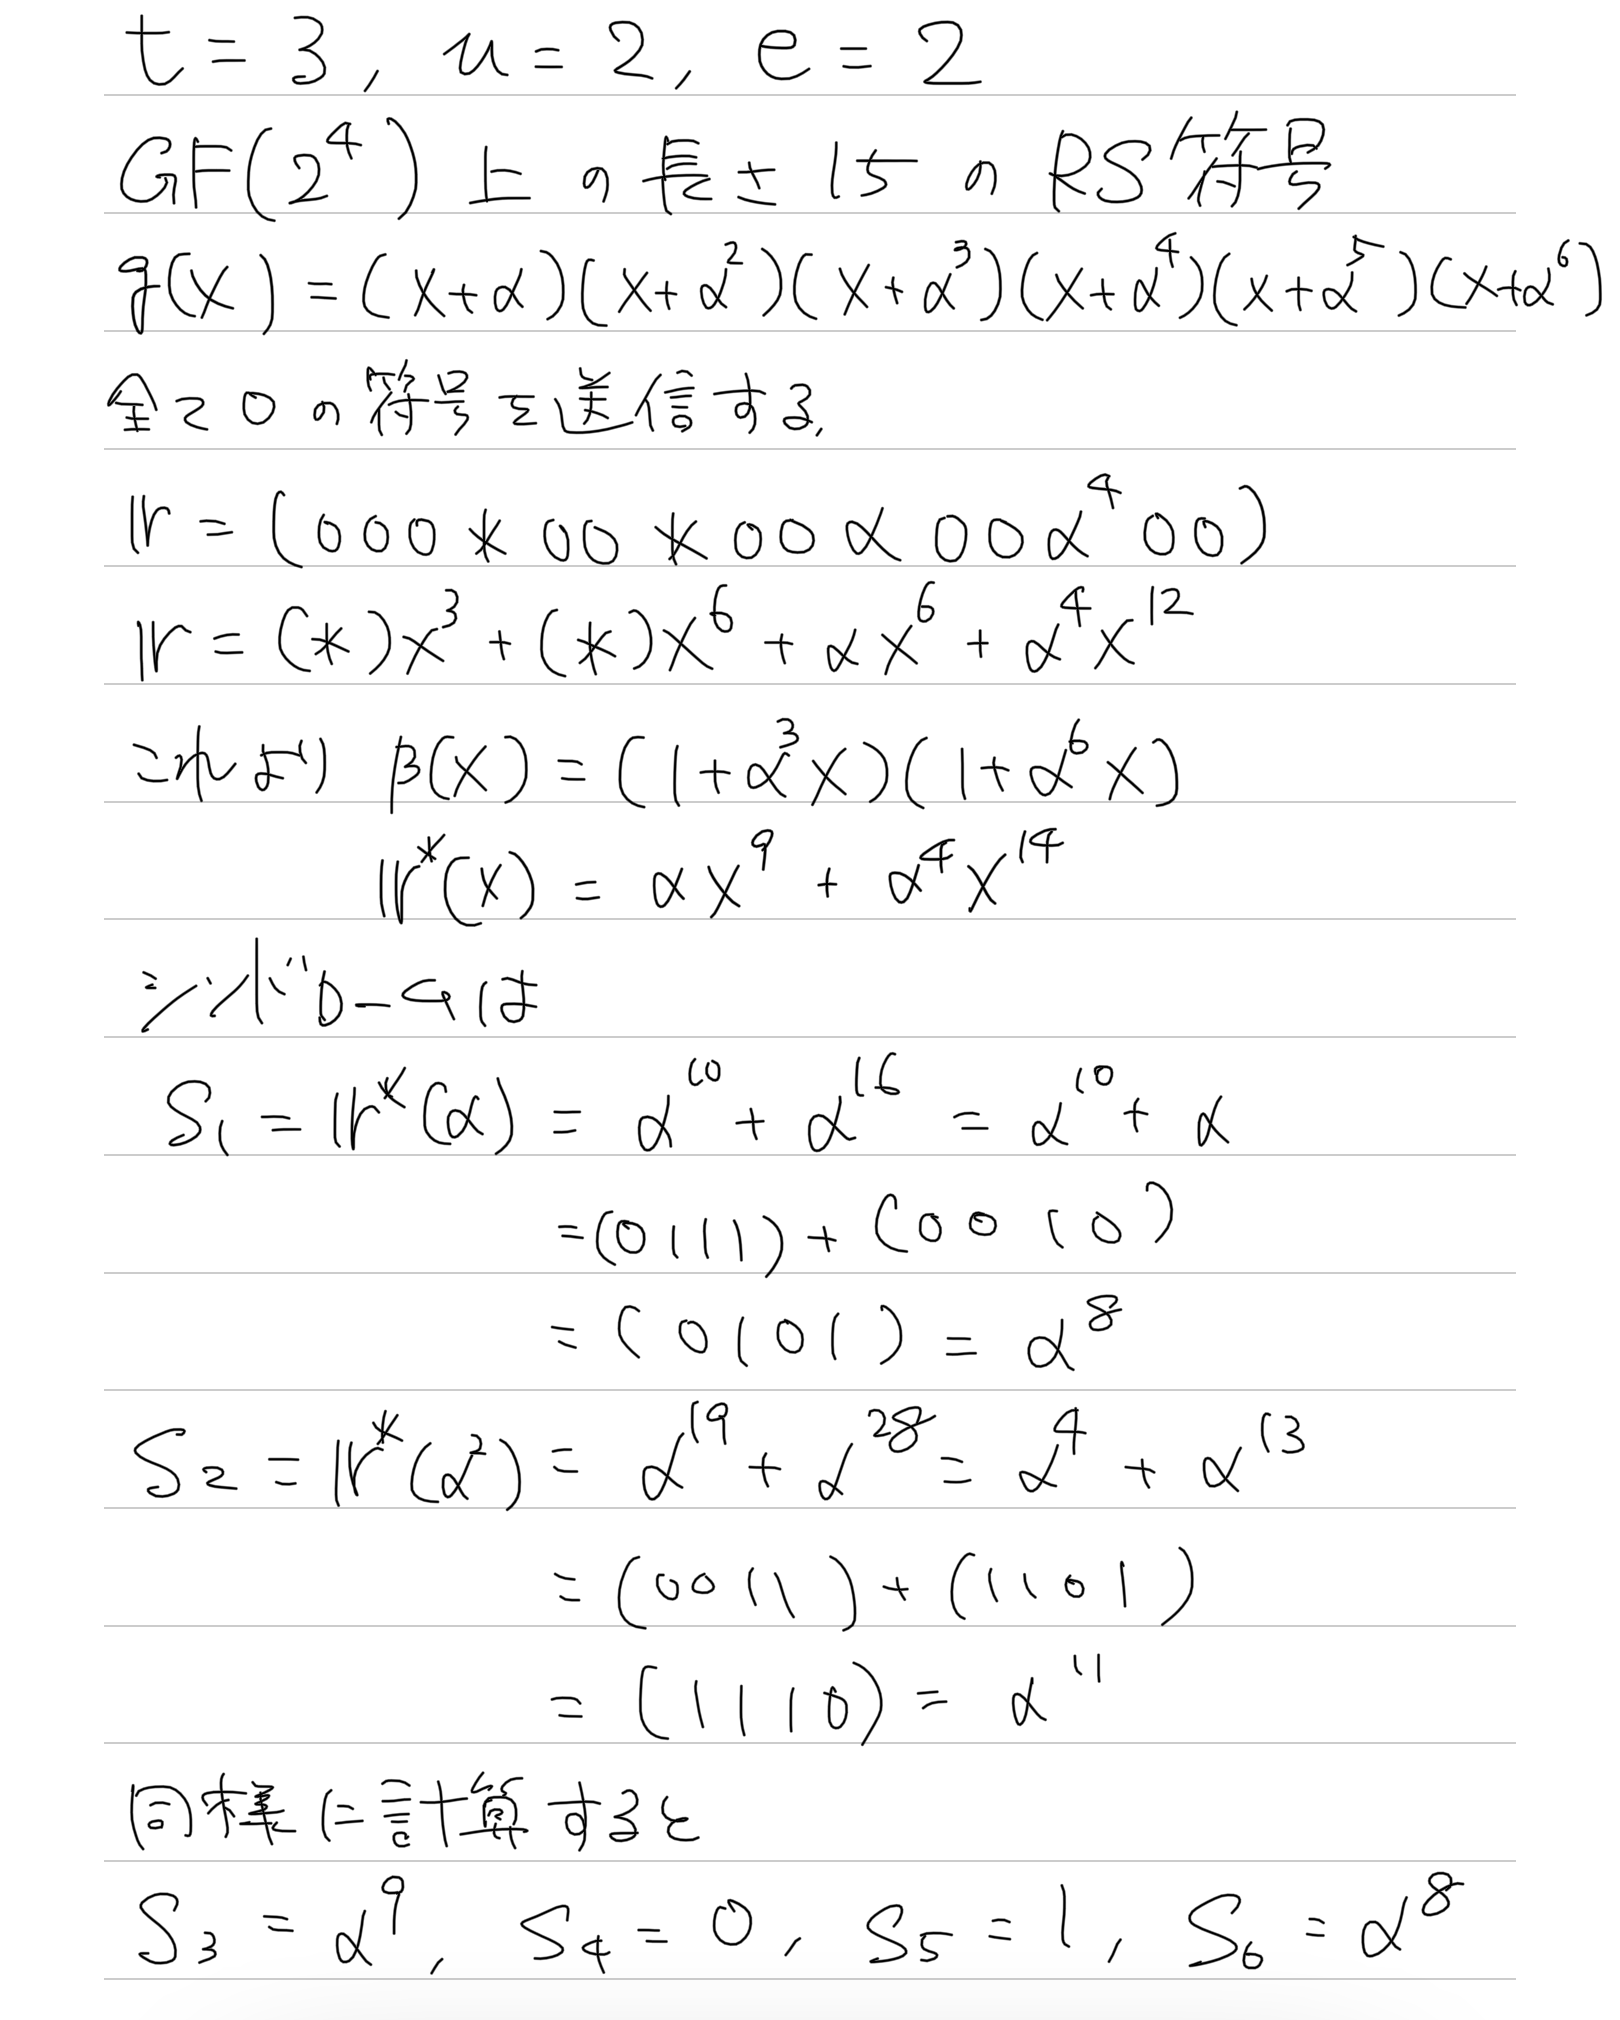 t = 3, u = 2, e = 2
GF(2^4) 上の長さ15のRS符号
g(X) = (X+α)(X+α^2)(X+α^3)(X+α^4)(X+α^5)(X+α^6)
全て0の符号を送信する,
𝕣 = (000*00*00α00α^400)
𝕣 = (*)X^3 + (*)X^6 + αX^6 + α^4X^12
これより β(X) = (1+α^3X)(1+α^6X)
𝕣*(X) = αX^9 + α^4X^14
シンドロームは
S1 = 𝕣*(α) = α^10 + α^16 = α^10 + α
=(0111)+(0010)
= (0101) = α^8
S2 = 𝕣*(α^2) = α^19 + α^28 = α^4 + α^13
= (0011) + (1101)
= (1110) = α^11
同様に計算すると
S3 = α^9, S4 = 0, S5 = 1, S6 = α^8